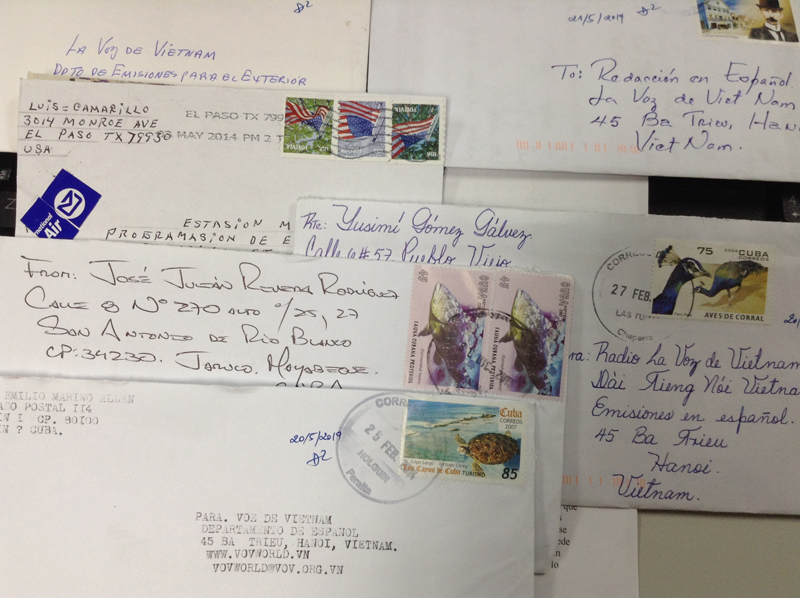 LA VOZ DE VIETNAM
DPTO DE EMISIONES PARA EL EXTERIOR
21/5/2019
To: Redacción en Español.
La Voz de Viet Nam
45 Ba Trieu, Hano
Viet Nam.
LUIS = CAMARILLO
3014 MONROE AVE
EL PASO TX 79930
USA
EL PASO TX 799
MAY 2014 PM 2 T
FOREVER
USA
Air
ESTASION M
PROGRAMASION DE E
Rte: Yusimí Gómez Gálvez
Calle #57 Pueblo Viejo
75
CUBA
CORREOS
AVES DE CORRAL
27 FEB.
From: JOSÉ JULIÁN RIVERA RODRÍGUEZ
CALLE 8 Nº 270 ALTO e/25, 27
SAN ANTONIO DE RÍO BLANCO
CP: 34230. JARUCO. MAYABEQUE.
CUBA
45
45
FAUNA CUBANA
Radio La Voz de Vietnam
Dài Tieng Nói Vietna
Emisiones en español.
45 Ba Trieu
Hanoi.
Vietnam.
EMILIO MARINO ALLEN
ANO POSTAL 114
N I CP. 80100
N ? CUBA.
20/5/2019
25 FEB.
HOLGUIN
Peralta
Cuba
CORREOS
2007
Los Cayos de Cuba TURISMO
85
PARA. VOZ DE VIETNAM
DEPARTAMENTO DE ESPAÑOL
45 BA TRIEU, HANOI, VIETNAM.
WWW.VOVWORLD.VN
VOVWORLD@VOV.ORG.VN
que
se
ede
en
lo